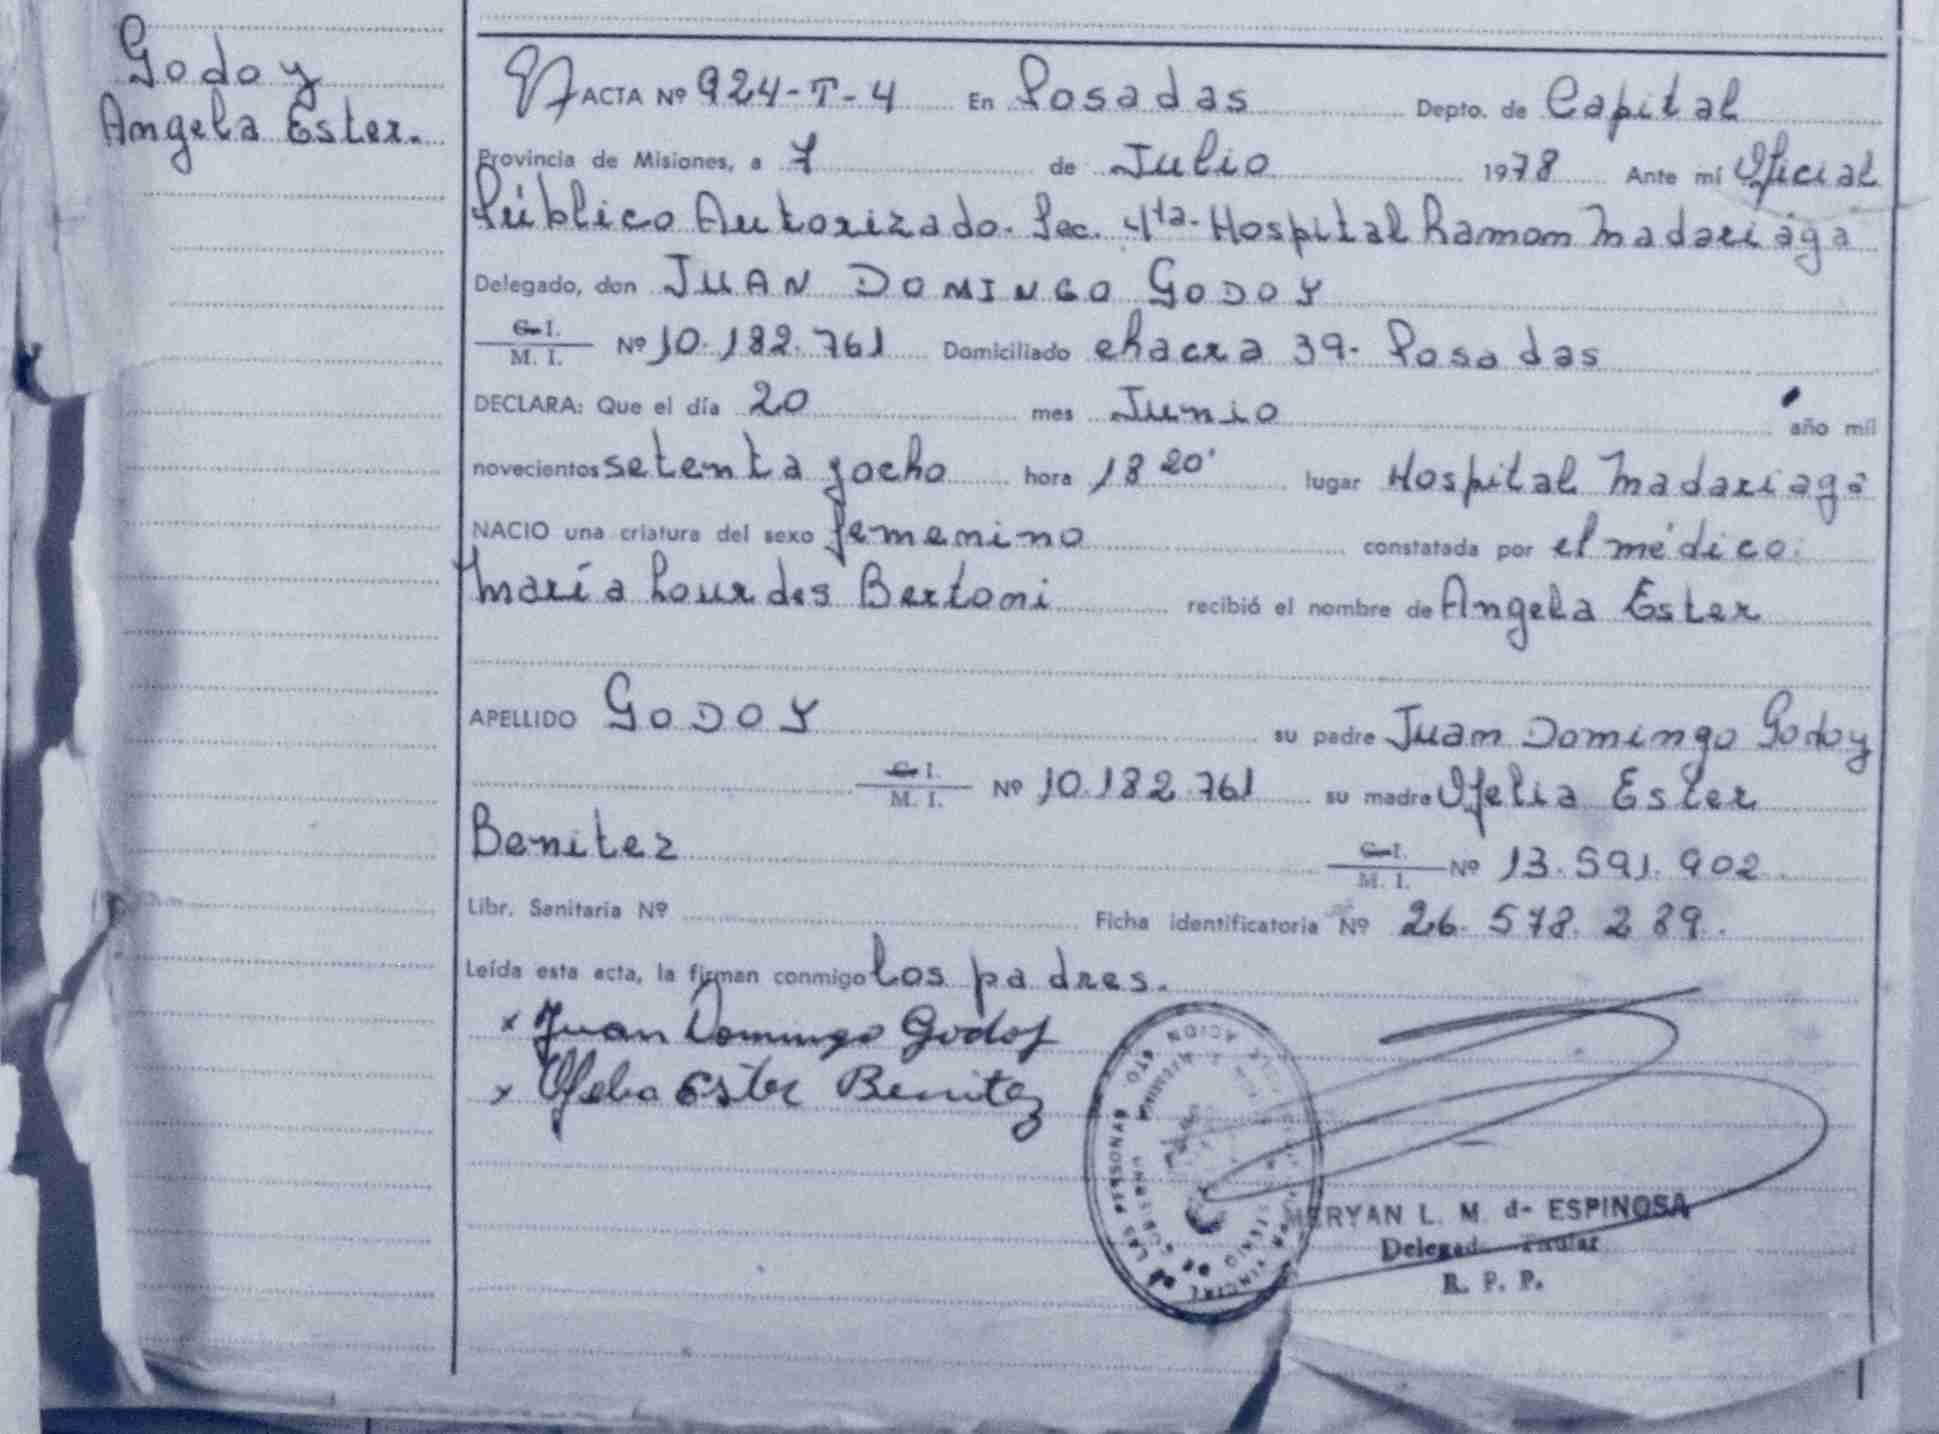 Godoy
Angela Ester.
ACTA Nº 924-T-4 En Posadas Depto. de Capital
Provincia de Misiones, a 7 de Julio 1978 Ante mí Oficial
Público Autorizado. Sec. 4ta. Hospital Ramon Madariaga
Delegado, don JUAN DOMINGO GODOY
C. I.
M. I. Nº 10.182.761 Domiciliado chacra 39. Posadas
DECLARA: Que el día 20 mes Junio año mil
novecientos setenta y ocho hora 18 20' lugar Hospital Madariaga
NACIO una criatura del sexo femenino constatada por el médico:
María Lourdes Bertoni recibió el nombre de Angela Ester
APELLIDO GODOY su padre Juan Domingo Godoy
C. I.
M. I. Nº 10.182.761 su madre Ofelia Ester
Benitez C. I.
M. I. Nº 13.591.902
Libr. Sanitaria Nº Ficha identificatoria Nº 26.578.289.
Leída esta acta, la firman conmigo los padres.
x Juan Domingo Godoy
x Ofelia Ester Benitez
DE LAS PERSONAS
MERYAN L. M. de ESPINOSA
Delegado Titular
R. P. P.